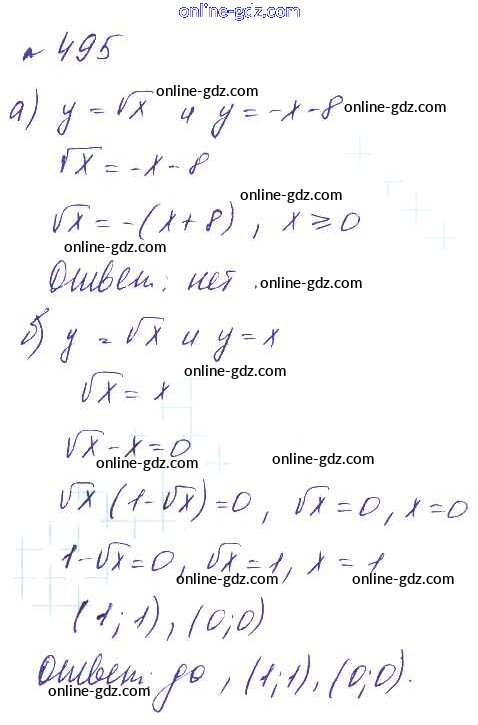 online-gdz.com
№ 495
online-gdz.com
а) y = √x и y = -x - 8
online-gdz.com
√x = -x - 8
online-gdz.com
√x = -(x + 8), x ≥ 0
online-gdz.com
Ответ: нет. online-gdz.com
б) y = √x и y = x
online-gdz.com
√x = x online-gdz.com
√x - x = 0
online-gdz.com online-gdz.com
√x (1 - √x) = 0, √x = 0, x = 0
1 - √x = 0, √x = 1, x = 1
online-gdz.com online-gdz.com
(1; 1), (0; 0)
Ответ: до, (1; 1), (0; 0).
online-gdz.com online-gdz.com